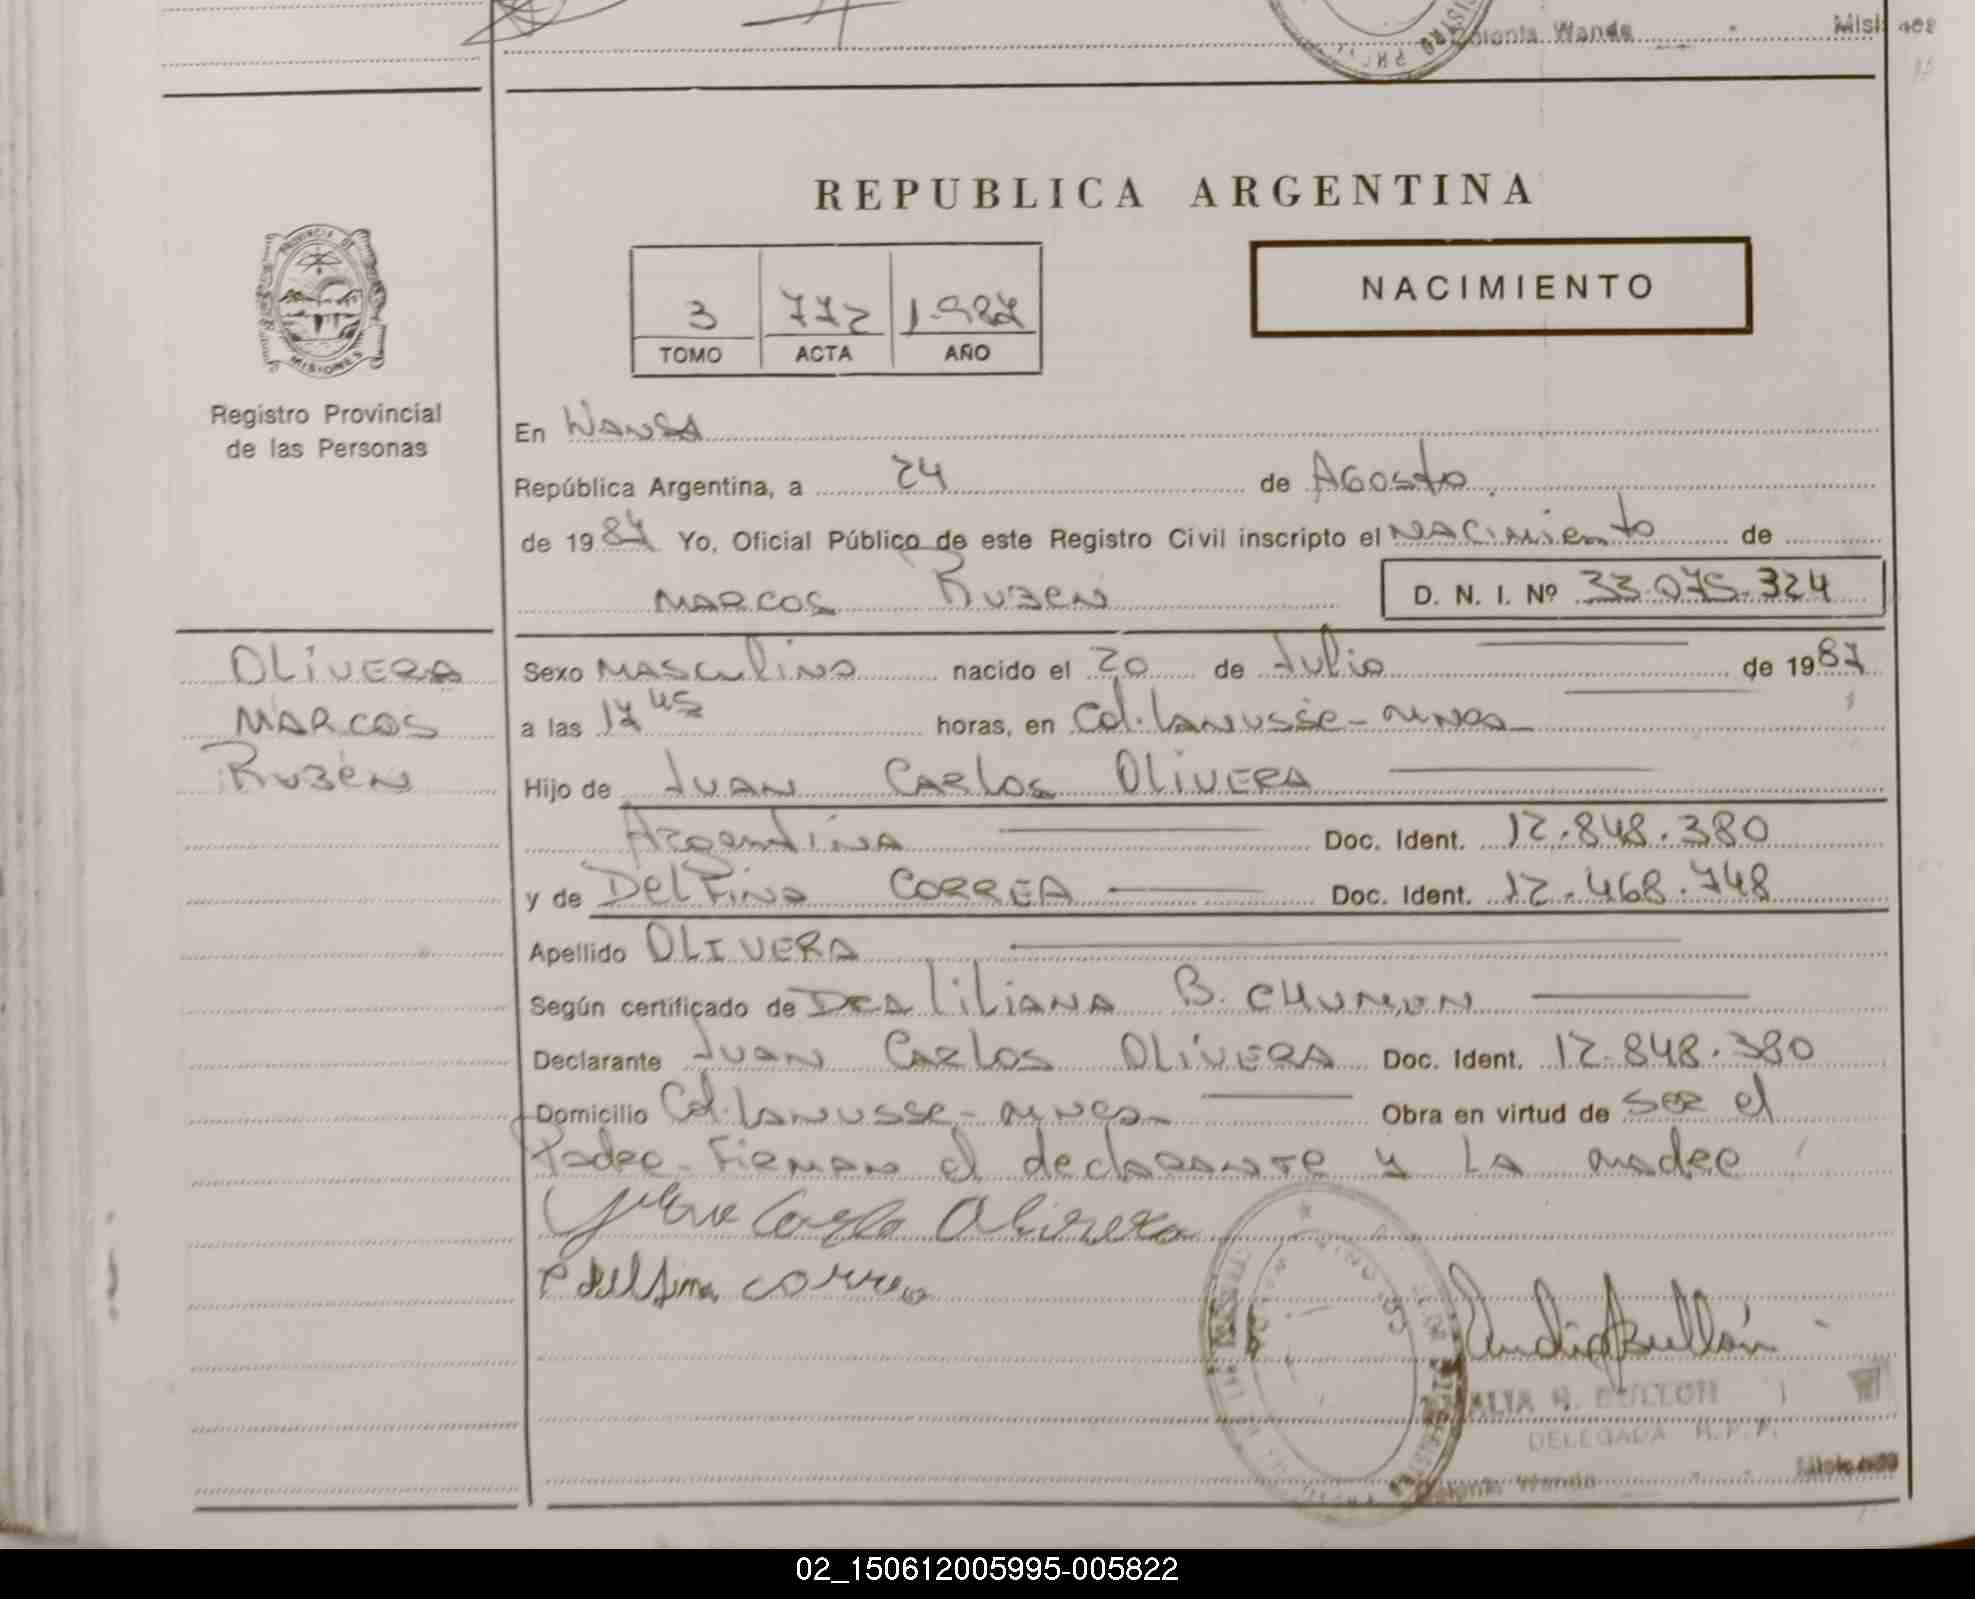 Colonia Wanda
REPUBLICA ARGENTINA
NACIMIENTO
3 772 1.987
TOMO ACTA AÑO
PROVINCIA DE
MISIONES
Registro Provincial
de las Personas
En Wanda
República Argentina, a 24 de Agosto
de 1987 Yo, Oficial Público de este Registro Civil inscripto el Nacimiento de
Marcos Ruben D. N. I. Nº 33.075.324
OLIVERA
MARCOS
Rubén
Sexo Masculino nacido el 20 de Julio de 1987
a las 17 45 horas, en Col. Lanusse - Mnes
Hijo de Juan Carlos OLIVERA
Argentina Doc. Ident. 12.848.380
y de Delfina CORREA Doc. Ident. 12.468.748
Apellido OLIVERA
Según certificado de Dra Liliana B.
Declarante Juan Carlos OLIVERA Doc. Ident. 12.848.380
Domicilio Col. Lanusse - Mnes Obra en virtud de ser el
Padre - Firman el declarante y la madre
Carlo Olivera
delfina correa
H. BULLON
DELEGADA R.P.P.
Colonia Wanda Misiones
02_150612005995-005822